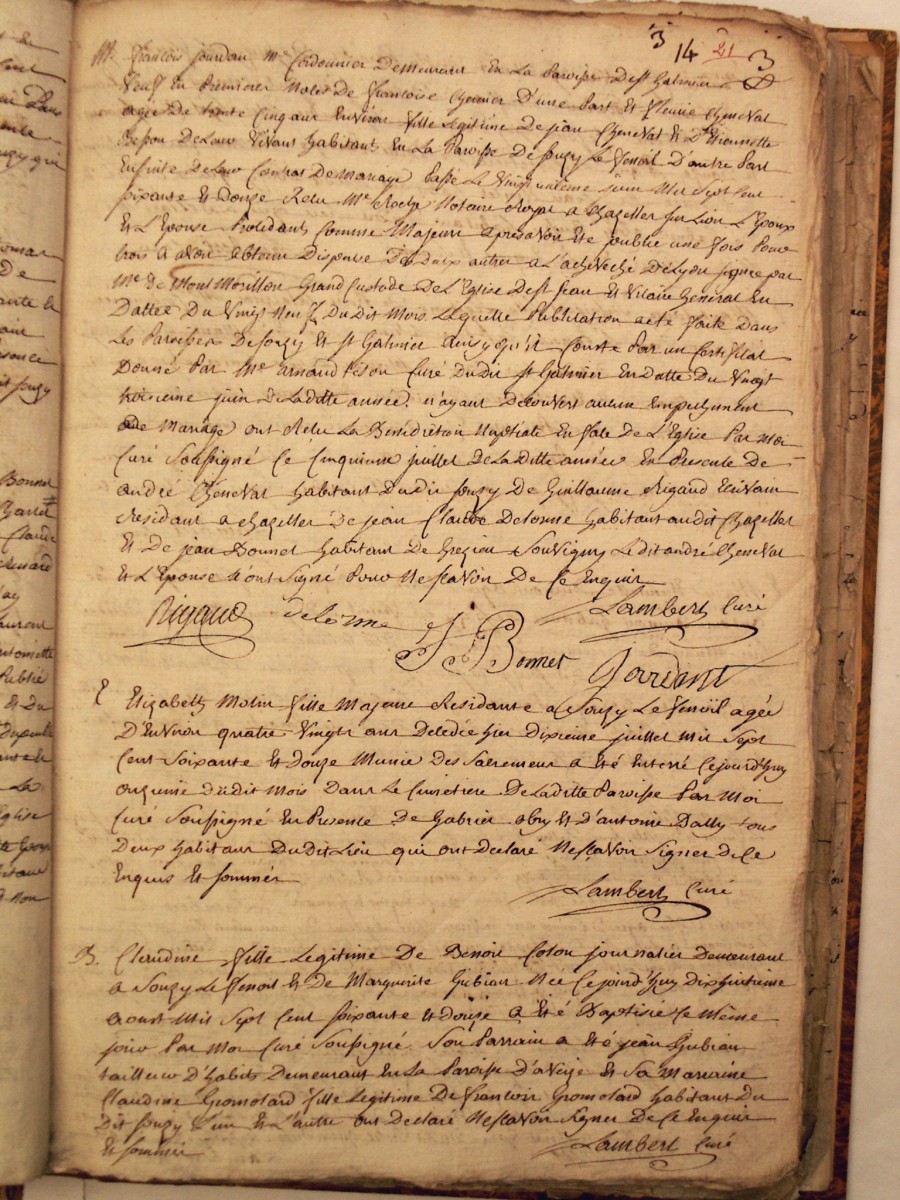 3 14 21 3
M. François jourdan Me Cordonnier Demeurant En La Paroisse De st Galmier
Veuf En Premieres Noles De Francoise Et Fleurie Cheneval
agée De trente Cinq ans Environ fille Legitime De jean Cheneval Et D'Etiennette
De Leur Vivant habitant En La Paroisse De Souzy Le D'autre Part
Ensuite De Leur Contrat De Mariage Passé Le Vingt juin Mil Sept Cent
soixante Et Douze Recu Me Roche Notaire Royal a Chazelles sur Lion L'Epoux
Et L'Epouse Procedants Comme Majeurs apres avoir Eté publié une fois Pour
trois Et avoir obtenu Dispense Des Deux autres a L'acheveché De Lyon signée par
Mre De Mont Morillon Grand Custode De L'Eglise De st jean Et Vicaire General En
Datte Du Vingt Neuf Du Dit Mois Laquelle Publication a eté faite Dans
Les Paroisses De Souzy Et st Galmier ainsy qu'il Conste Par un Certificat
Donné Par Mre arnaud Curé Du Dit st Galmier En Datte Du Vingt
troisieme juin De La Ditte année. n'ayant Decouvert aucun Empechement
De Mariage ont Recu La Benediction Nuptiale En face De L'Eglise Par Moi
Curé Soussigné Ce Cinquieme juillet De La Ditte année En Presence De
andré Cheneval habitant Du Dit Souzy De Guillaume Rigaud Ecrivain
Residant a Chazelles De jean Claude Delorme habitant au Dit Chazelles
Et De jean Bonnet habitant De Grezieu Souvigny Le Dit andré Cheneval
Et L'Epouse N'ont Signé Pour Ne Scavoir De Ce Enquis
Rigaud Delorme Lambert Curé
J Bonnet Jourdant
E Elizabeth Molin fille Majeure Residante a Souzy Le agée
D'Environ quatre Vingts ans Decedée hier Dixieme juillet Mil Sept
Cent Soixante Et Douze Munie Des Sacremens a Eté Enterré Cejourd'huy
onzieme du dit Mois Dans Le Cimetiere De La Ditte Paroisse Par Moi
Curé Soussigné En Presence De Gabriel Et D'antoine Dally tous
Deux habitans Du Dit Lieu qui ont Declaré Ne Scavoir Signer De Ce
Enquis Et sommés
Lambert Curé
B. Claudine fille Legitime De Benoit Colon journalier Demeurant
a Souzy Le Et De Marguerite Gubian Née Cejourd'huy Dixhuitieme
aoust Mil Sept Cent soixante Et Douze a Eté Baptisée Ce Même
jour Par Moi Curé Soussigné. Son Parrain a Eté jean Gubian
tailleur D'habits Demeurant En La Paroisse D'aveize Et Sa Marraine
Claudine Gromolard fille Legitime De Francois Gromolard habitant Du
Dit Souzy L'un Et L'autre ont Declaré Ne Scavoir Signer De Ce Enquis
Et sommés
Lambert Curé